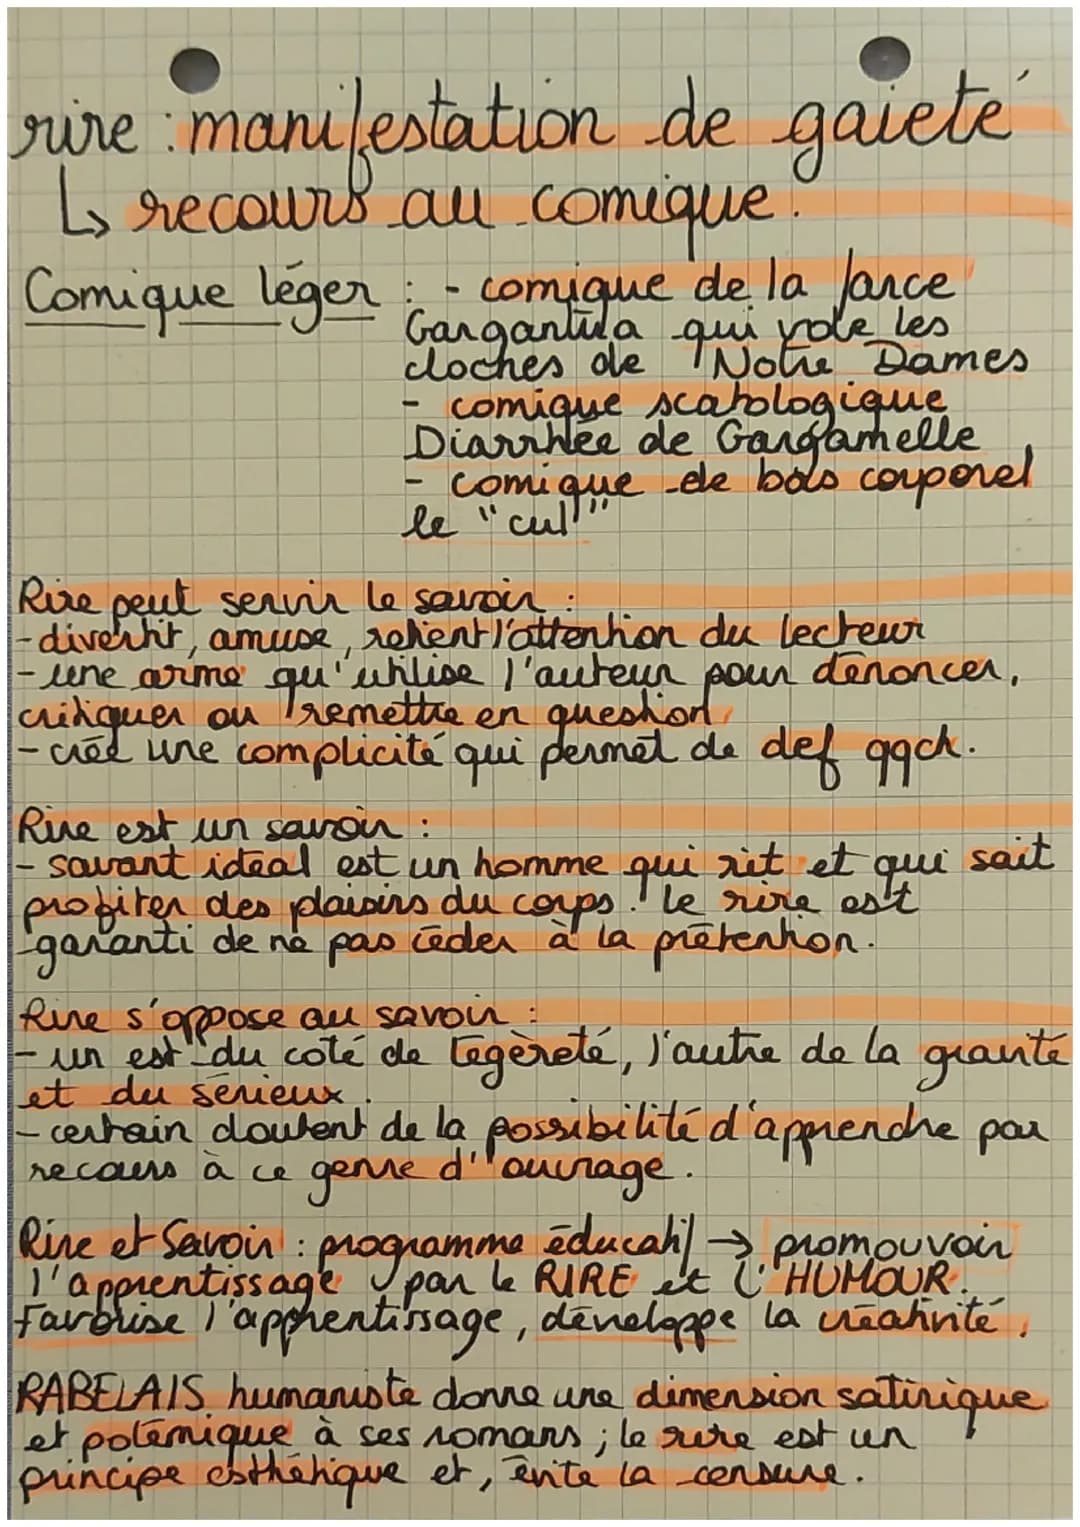 rire : manifestation de gaieté
↳ recours au comique.
Comique léger : - comique de la farce
Gargantua qui vole les
cloches de Notre Dames
- comique scatologique
Diarrhée de Gargamelle
- comique de bas corporel
le "cul"
Rire peut servir le savoir :
- divertit, amuse, retient l'attention du lecteur
- une arme qu'utilise l'auteur pour dénoncer,
critiquer ou remettre en question,
- créé une complicité qui permet de def qqch.
Rire est un savoir :
- savant idéal est un homme qui rit et qui sait
profiter des plaisirs du corps. le rire est
garanti de ne pas céder à la prétention.
Rire s'oppose au savoir :
- un est du coté de légèreté, l'autre de la gravité
et du sérieux.
- certain doutent de la possibilité d'apprendre par
recours à ce genre d'ouvrage.
Rire et Savoir : programme éducatif → promouvoir
l'apprentissage par le RIRE et l'HUMOUR.
Favorise l'apprentissage, développe la créativité,
RABELAIS humaniste donne une dimension satirique
et polémique à ses romans ; le rire est un
principe esthétique et, évite la censure.